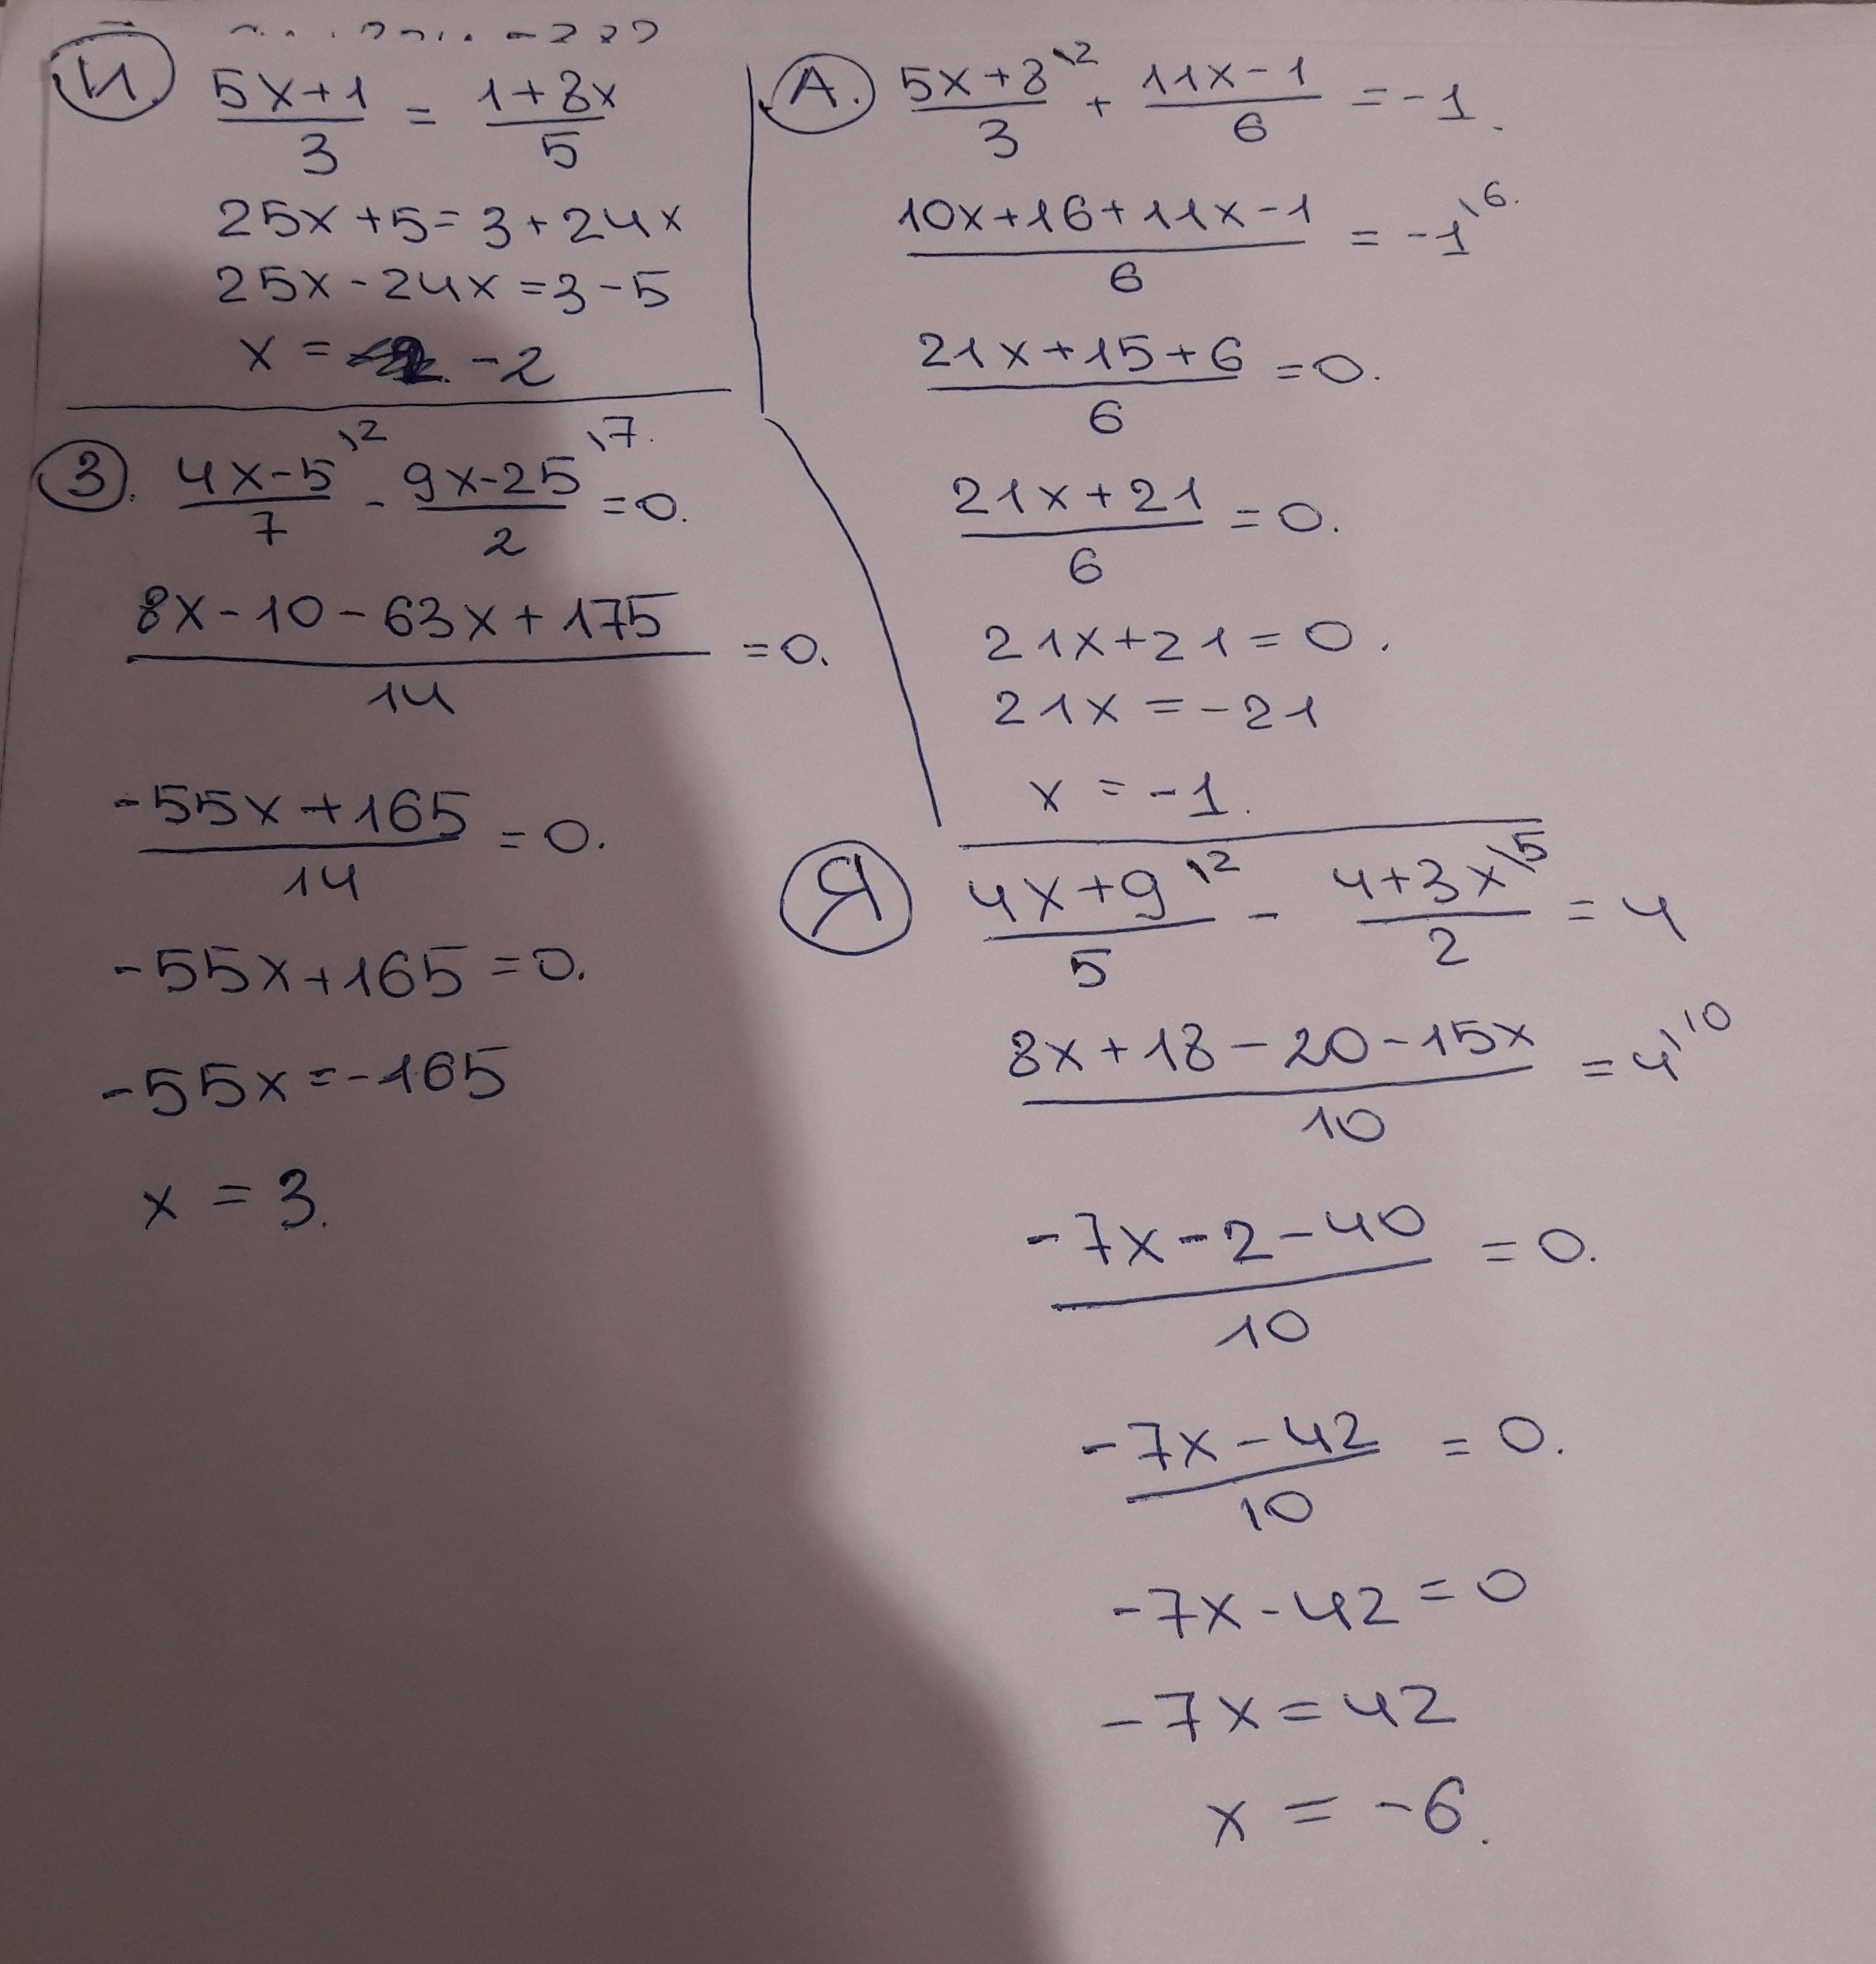 И. (5x+1)/3 = (1+8x)/5
25x+5=3+24x
25x-24x=3-5
x = -2
З. (4x-5)/7 \2 - (9x-25)/2 \7 =0.
(8x-10-63x+175)/14 =0.
(-55x+165)/14 =0.
-55x+165=0.
-55x=-165
x = 3.
А. (5x+8)/3 \2 + (11x-1)/6 =-1.
(10x+16+11x-1)/6 = -1 \6.
(21x+15+6)/6 =0.
(21x+21)/6 =0.
21x+21=0.
21x=-21
x = -1.
Я (4x+9)/5 \2 - (4+3x)/2 \5 = 4
(8x+18-20-15x)/10 =4 \10
(-7x-2-40)/10 = 0.
(-7x-42)/10 = 0.
-7x-42=0
-7x=42
x = -6.